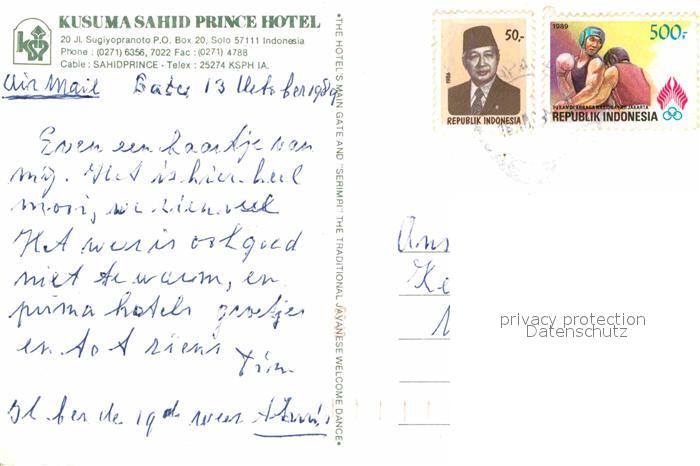 KUSUMA SAHID PRINCE HOTEL
20 Jl. Sugiyopranoto P.O. Box 20, Solo 57111 Indonesia
Phone : (0271) 6356, 7022 Fax : (0271) 4788
Cable : SAHIDPRINCE - Telex : 25274 KSPH IA.
Air Mail 13 October 1989
Even een kaartje van
mij. Het is hier heel
mooi, we zien veel
Het weer is ook goed
niet te warm, en
prima hotels groetjes
en tot ziens
Ik ben de 19de weer thuis
•THE HOTEL'S MAIN GATE AND "SERIMPI" THE TRADITIONAL JAVANESE WELCOME DANCE•
50,-
1986
REPUBLIK INDONESIA
1989
500,-
REPUBLIK INDONESIA
Ans
Ke
privacy protection
Datenschutz